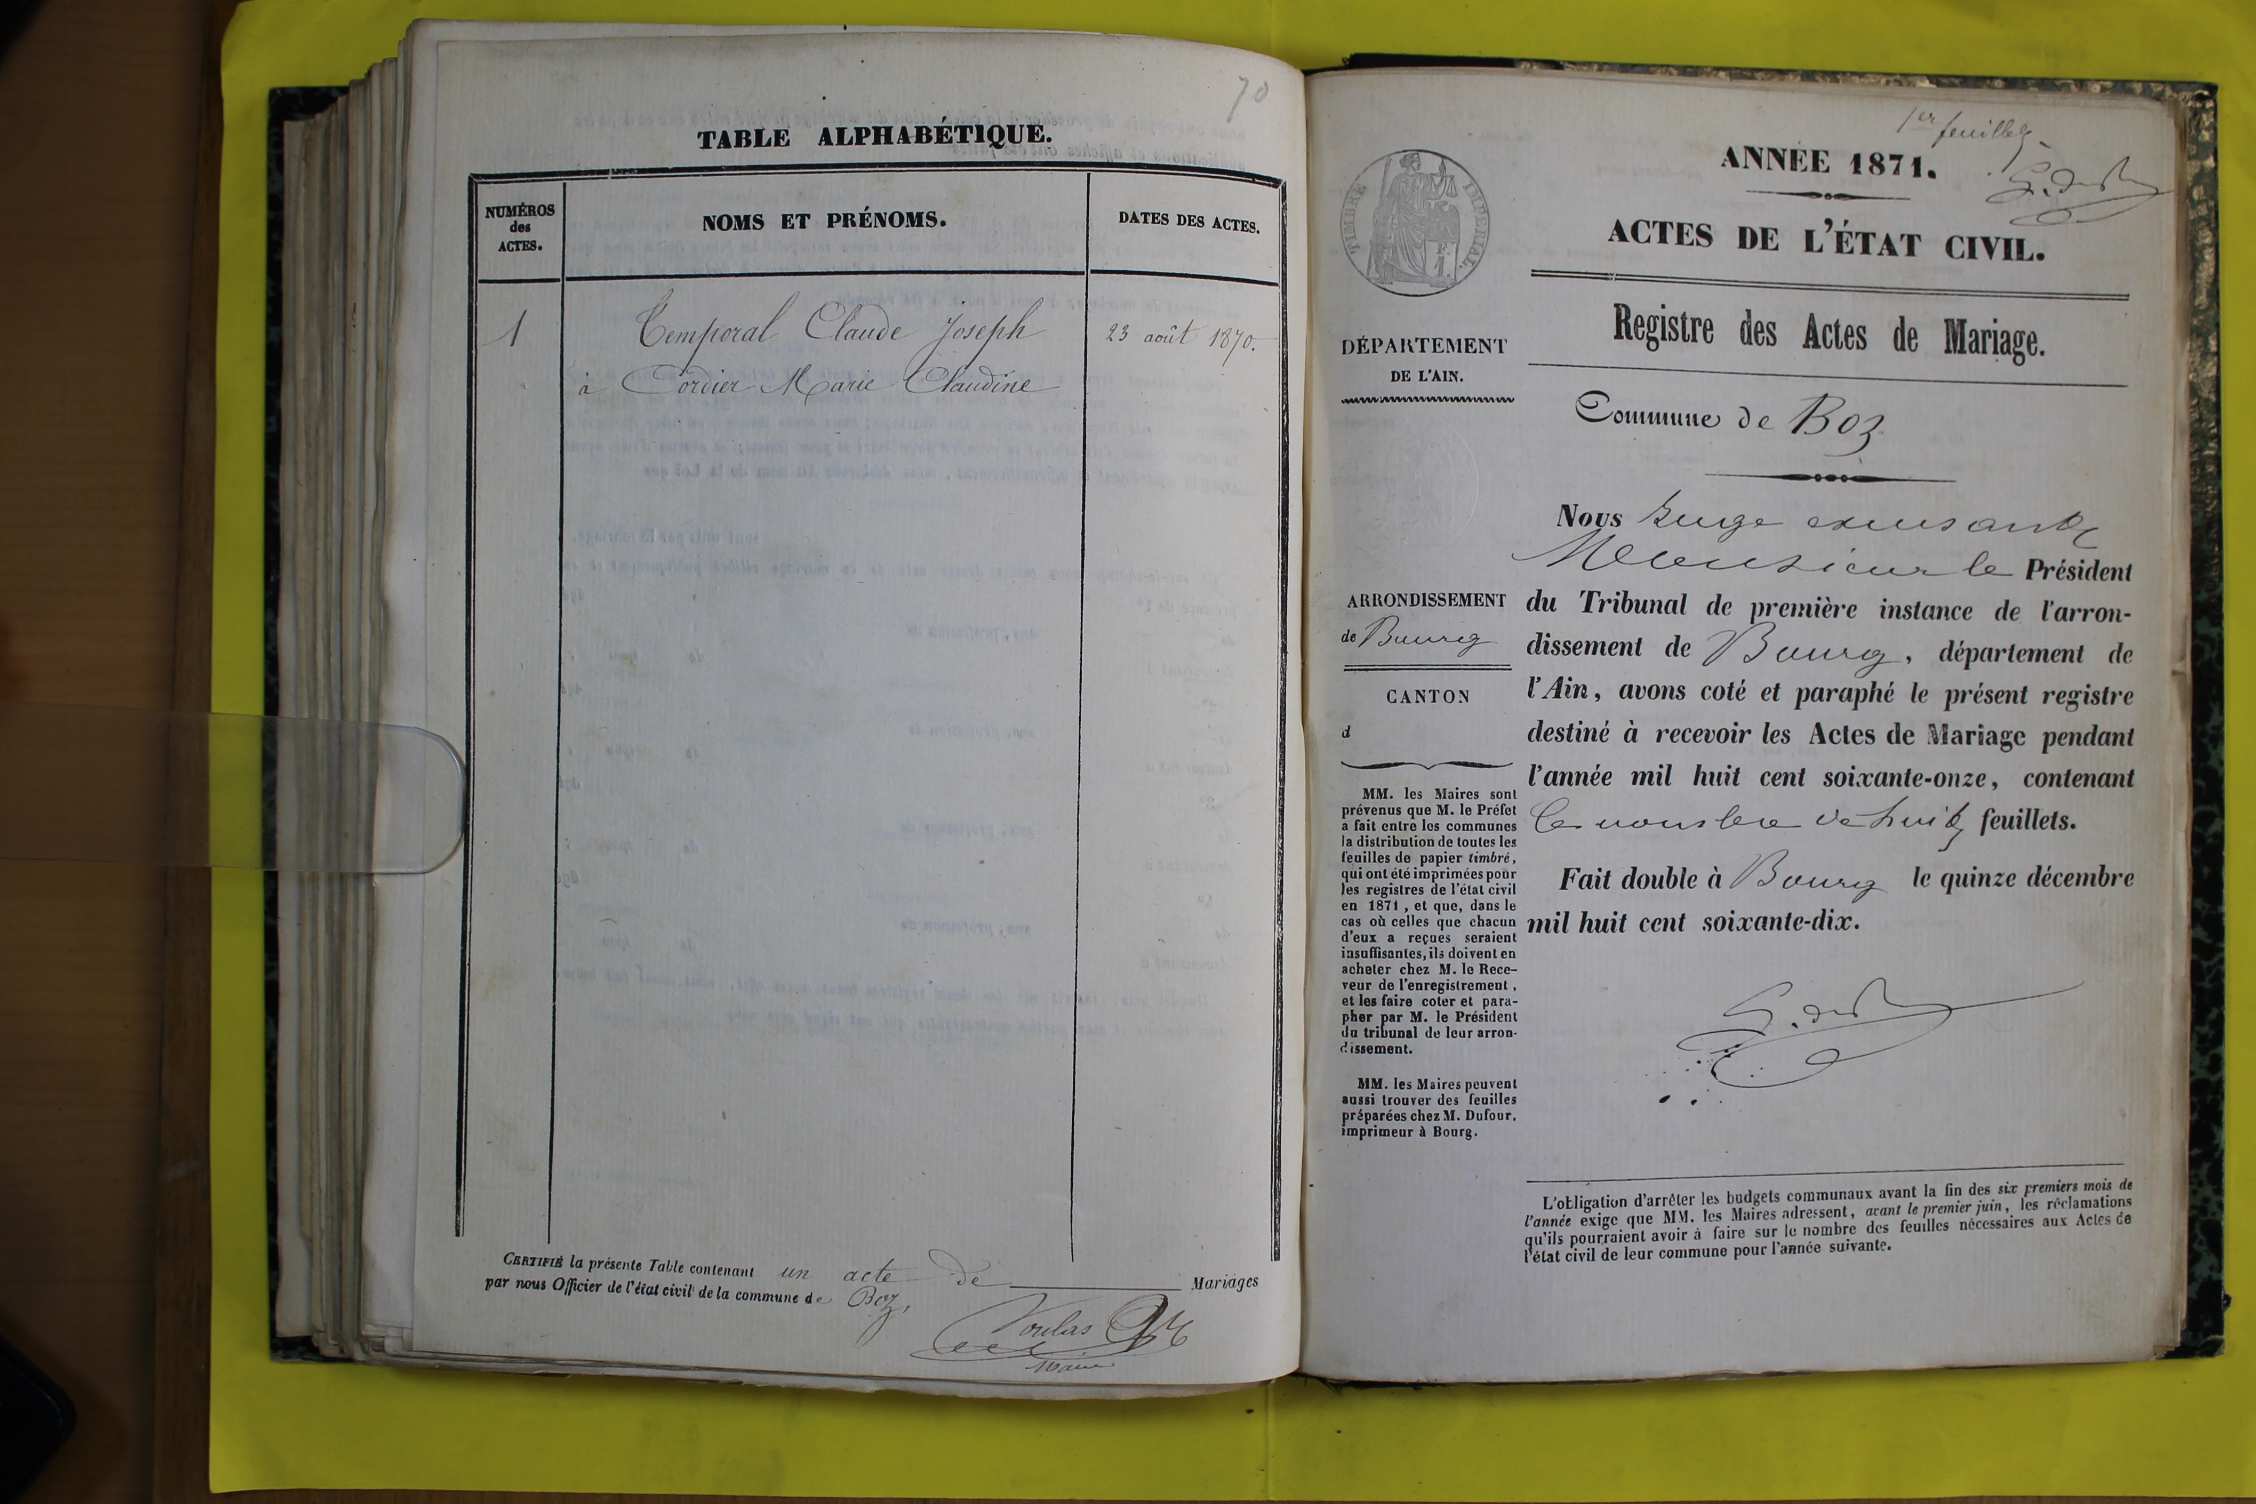 70
TABLE ALPHABÉTIQUE.
NUMÉROS
des
ACTES.
NOMS ET PRÉNOMS.
DATES DES ACTES.
1
Temporal Claude Joseph
23 août 1870.
à Cordier Marie Claudine
CERTIFIÉ la présente Table contenant un acte de Mariages
par nous Officier de l'état civil de la commune de Boz,
Maire
1er feuillet
ANNÉE 1871.
ACTES DE L'ÉTAT CIVIL.
Registre des Actes de Mariage.
Commune de Boz
TIMBRE IMPÉRIAL.
DÉPARTEMENT
DE L'AIN.
ARRONDISSEMENT
de Bourg
CANTON
d
MM. les Maires sont
prévenus que M. le Préfet
a fait entre les communes
la distribution de toutes les
feuilles de papier timbré,
qui ont été imprimées pour
les registres de l'état civil
en 1871, et que, dans le
cas où celles que chacun
d'eux a reçues seraient
insuffisantes, ils doivent en
acheter chez M. le Rece-
veur de l'enregistrement,
et les faire coter et para-
pher par M. le Président
du tribunal de leur arron-
dissement.
MM. les Maires peuvent
aussi trouver des feuilles
préparées chez M. Dufour,
imprimeur à Bourg.
Nous Juge
Monsieur le Président
du Tribunal de première instance de l'arron-
dissement de Bourg, département de
l'Ain, avons coté et paraphé le présent registre
destiné à recevoir les Actes de Mariage pendant
l'année mil huit cent soixante-onze, contenant
le nombre de huit feuillets.
Fait double à Bourg le quinze décembre
mil huit cent soixante-dix.
L'obligation d'arrêter les budgets communaux avant la fin des six premiers mois de
l'année exige que MM. les Maires adressent, avant le premier juin, les réclamations
qu'ils pourraient avoir à faire sur le nombre des feuilles nécessaires aux Actes de
l'état civil de leur commune pour l'année suivante.